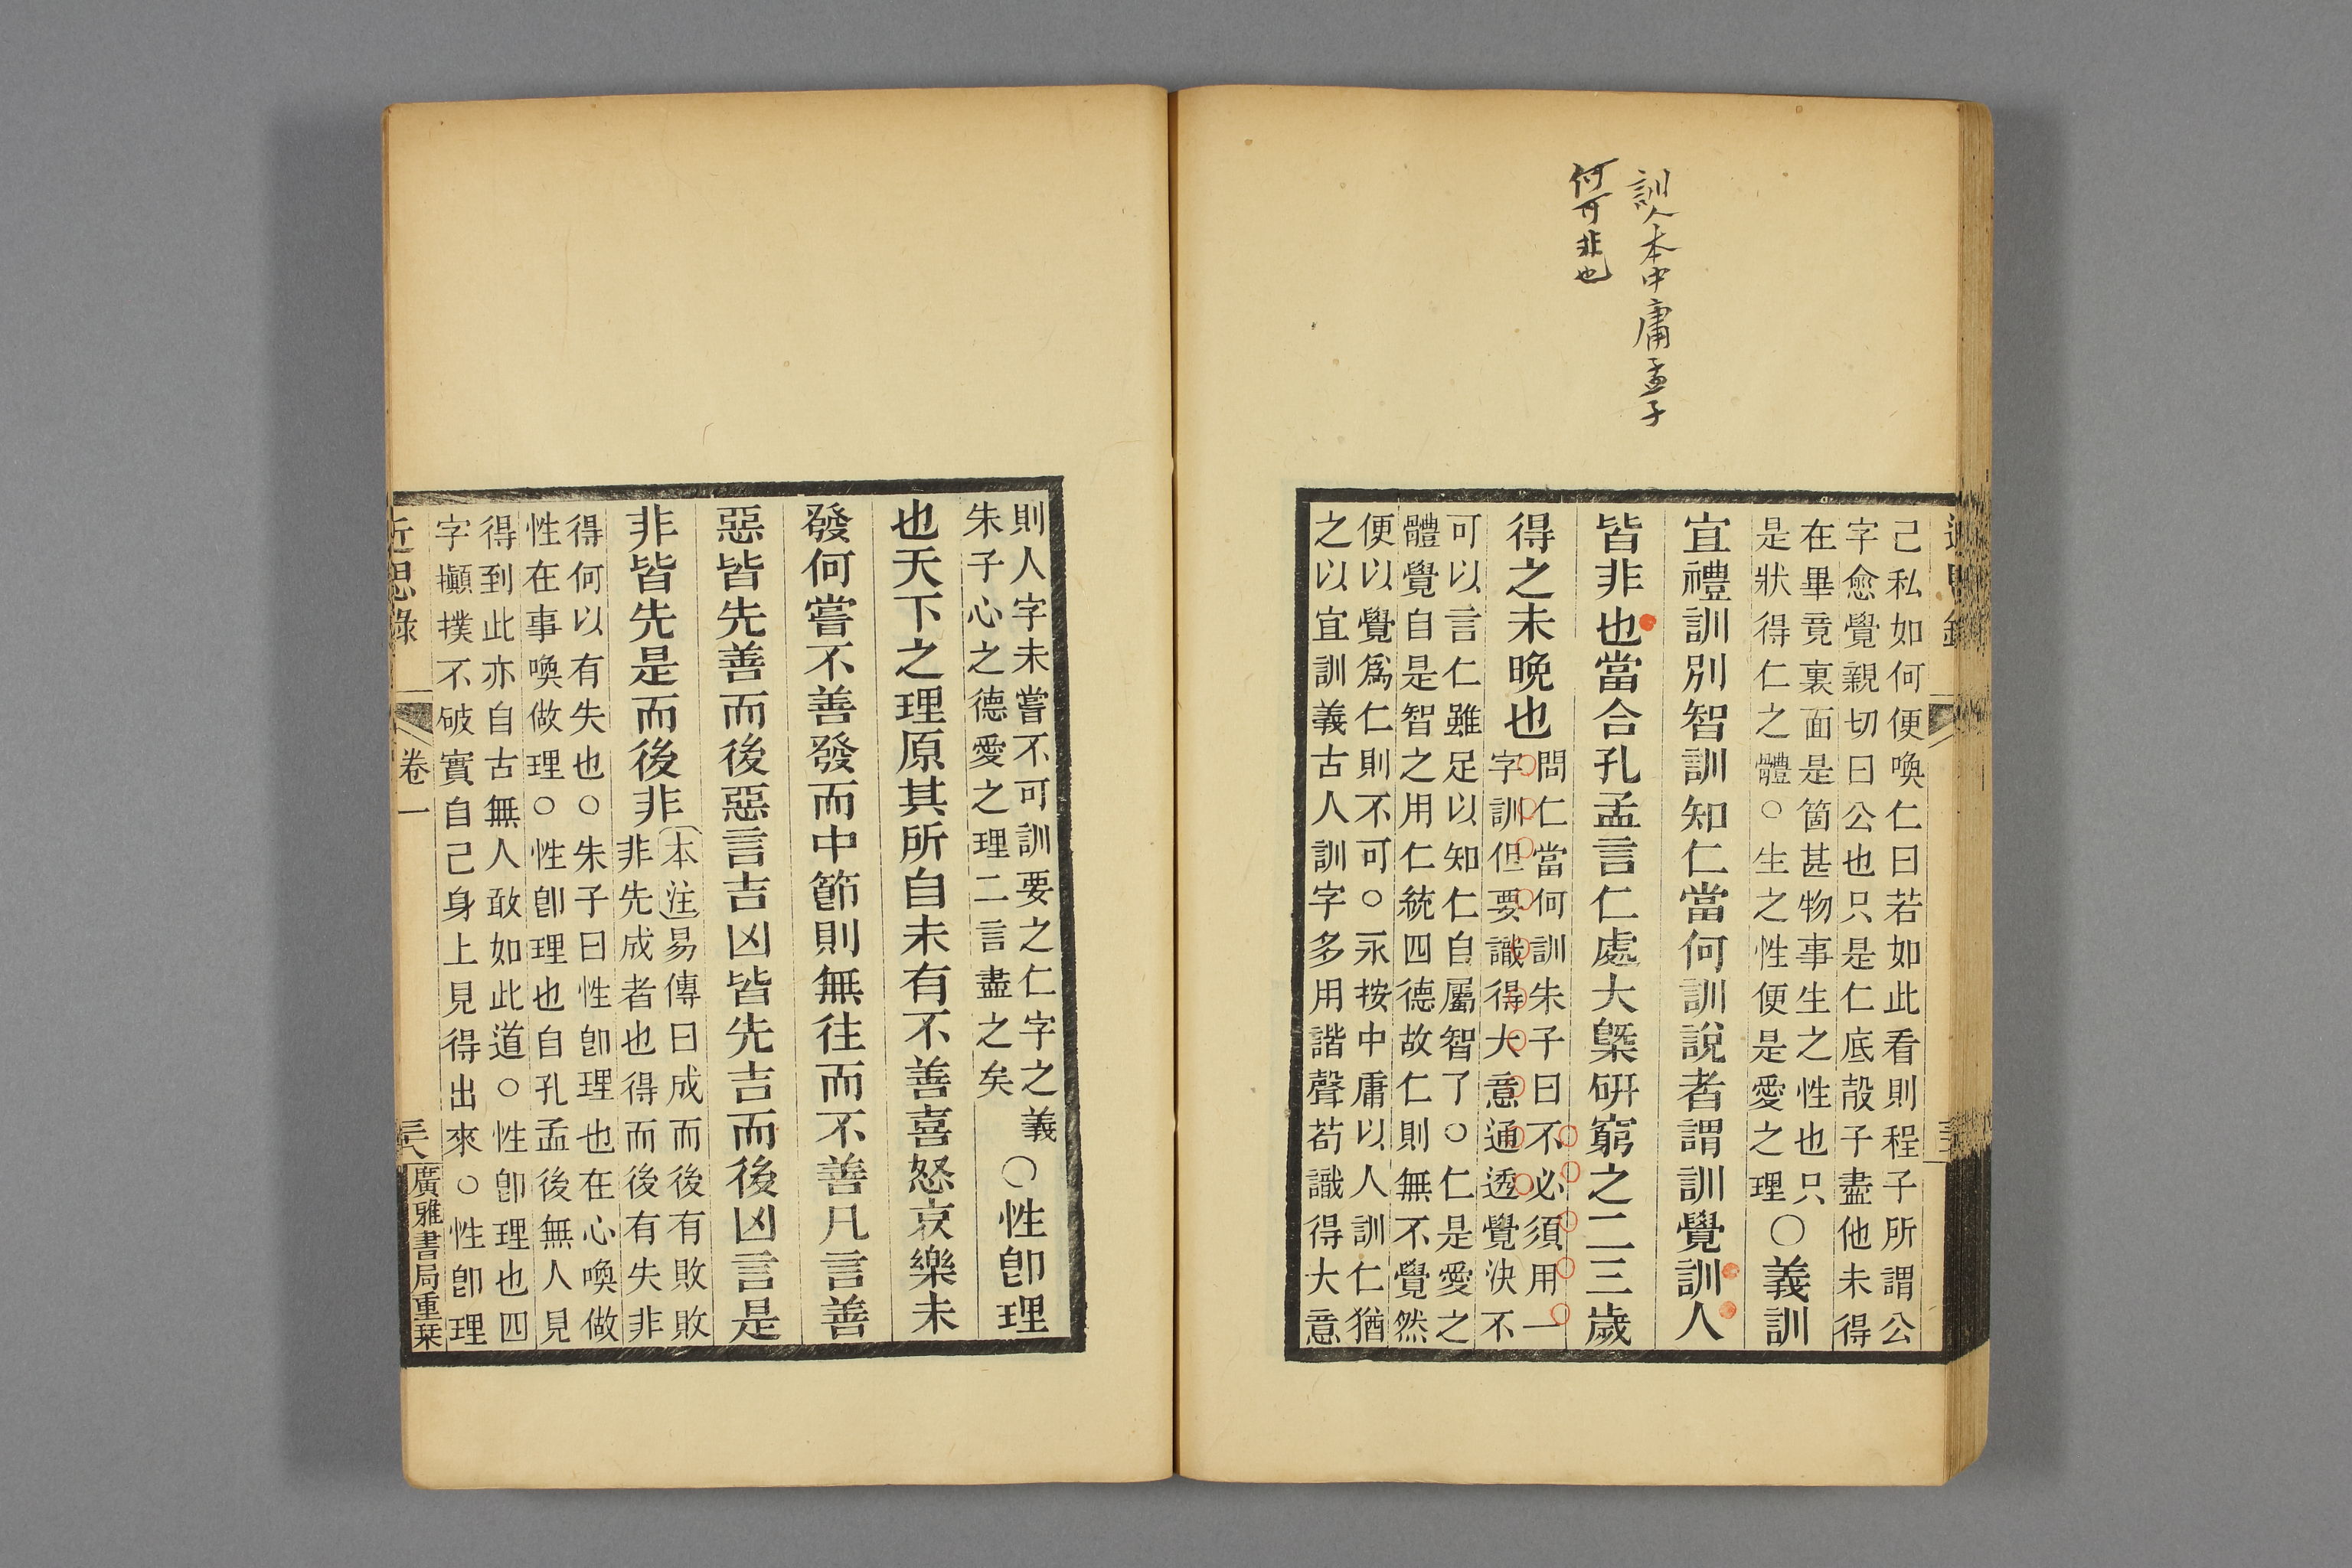 訓人本中庸孟子
何可非也
己私如何便喚仁曰若如此看則程子所謂公
字愈覺親切曰公也只是仁底殼子盡他未得
在畢竟裏面是箇甚物事生之性也只
是狀得仁之體○生之性便是愛之理
○義訓
宜禮訓別智訓知仁當何訓說者謂訓覺訓人
皆非也當合孔孟言仁處大槩硏窮之二三歲
得之未晚也
問仁當何訓朱子曰不必須用一
字訓但要識得大意通透覺決不
可以言仁雖足以知仁自屬智了○仁是愛之
體覺自是智之用仁統四德故仁則無不覺然
便以覺爲仁則不可○永按中庸以人訓仁猶
之以宜訓義古人訓字多用諧聲苟識得大意
則人字未嘗不可訓要之仁字之義
朱子心之德愛之理二言盡之矣
○性卽理
也天下之理原其所自未有不善喜怒哀樂未
發何嘗不善發而中節則無往而不善凡言善
惡皆先善而後惡言吉凶皆先吉而後凶言是
非皆先是而後非
本注易傳曰成而後有敗敗
非先成者也得而後有失非
得何以有失也○朱子曰性卽理也在心喚做
性在事喚做理○性卽理也自孔孟後無人見
得到此亦自古無人敢如此道○性卽理也四
字攧撲不破實自己身上見得出來○性卽理
近思錄
卷一
廣雅書局重栞